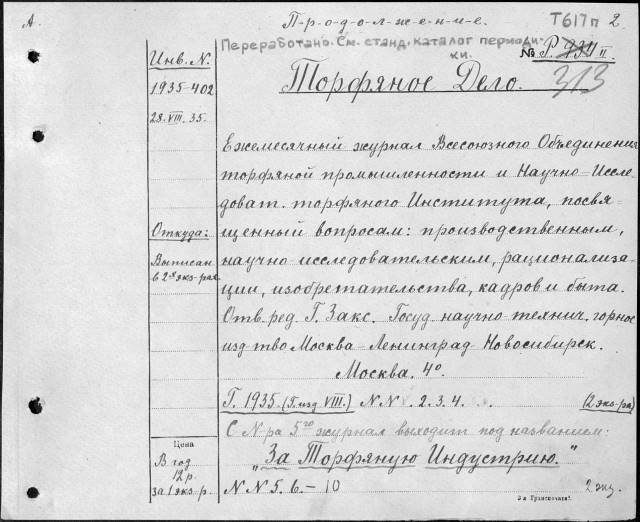 А.
П-р-о-д-о-л-ж-е-н-и-е.
Т617п 2
Переработано. См. станд. каталог периоди-
ки.
№ Р. 934 II.
313
Торфяное Дело.
Инв. N.
1935-402
28.VIII.35.
Откуда:
Выписан
в 2х экз-рах
Цена
В год
12 р.
за 1 экз-р.
Ежемесячный журнал Всесоюзного Объединения
торфяной промышленности и Научно-Иссле-
доват. торфяного Института, посвя-
щенный вопросам: производственным,
научно-исследовательским, рационализа-
ции, изобретательства, кадров и быта.
Отв. ред. Г. Закс. Госуд. научно-технич. горное
изд-тво Москва-Ленинград-Новосибирск.
Москва. 4°.
Г. 1935. (Г. изд. VIII.) N N 2. 3. 4. (2 экз-ра)
С N-ра 5го журнал выходит под названием:
„За Торфяную Индустрию."
N N 5. 6. - 10 2 экз.
3-я Транспечати.